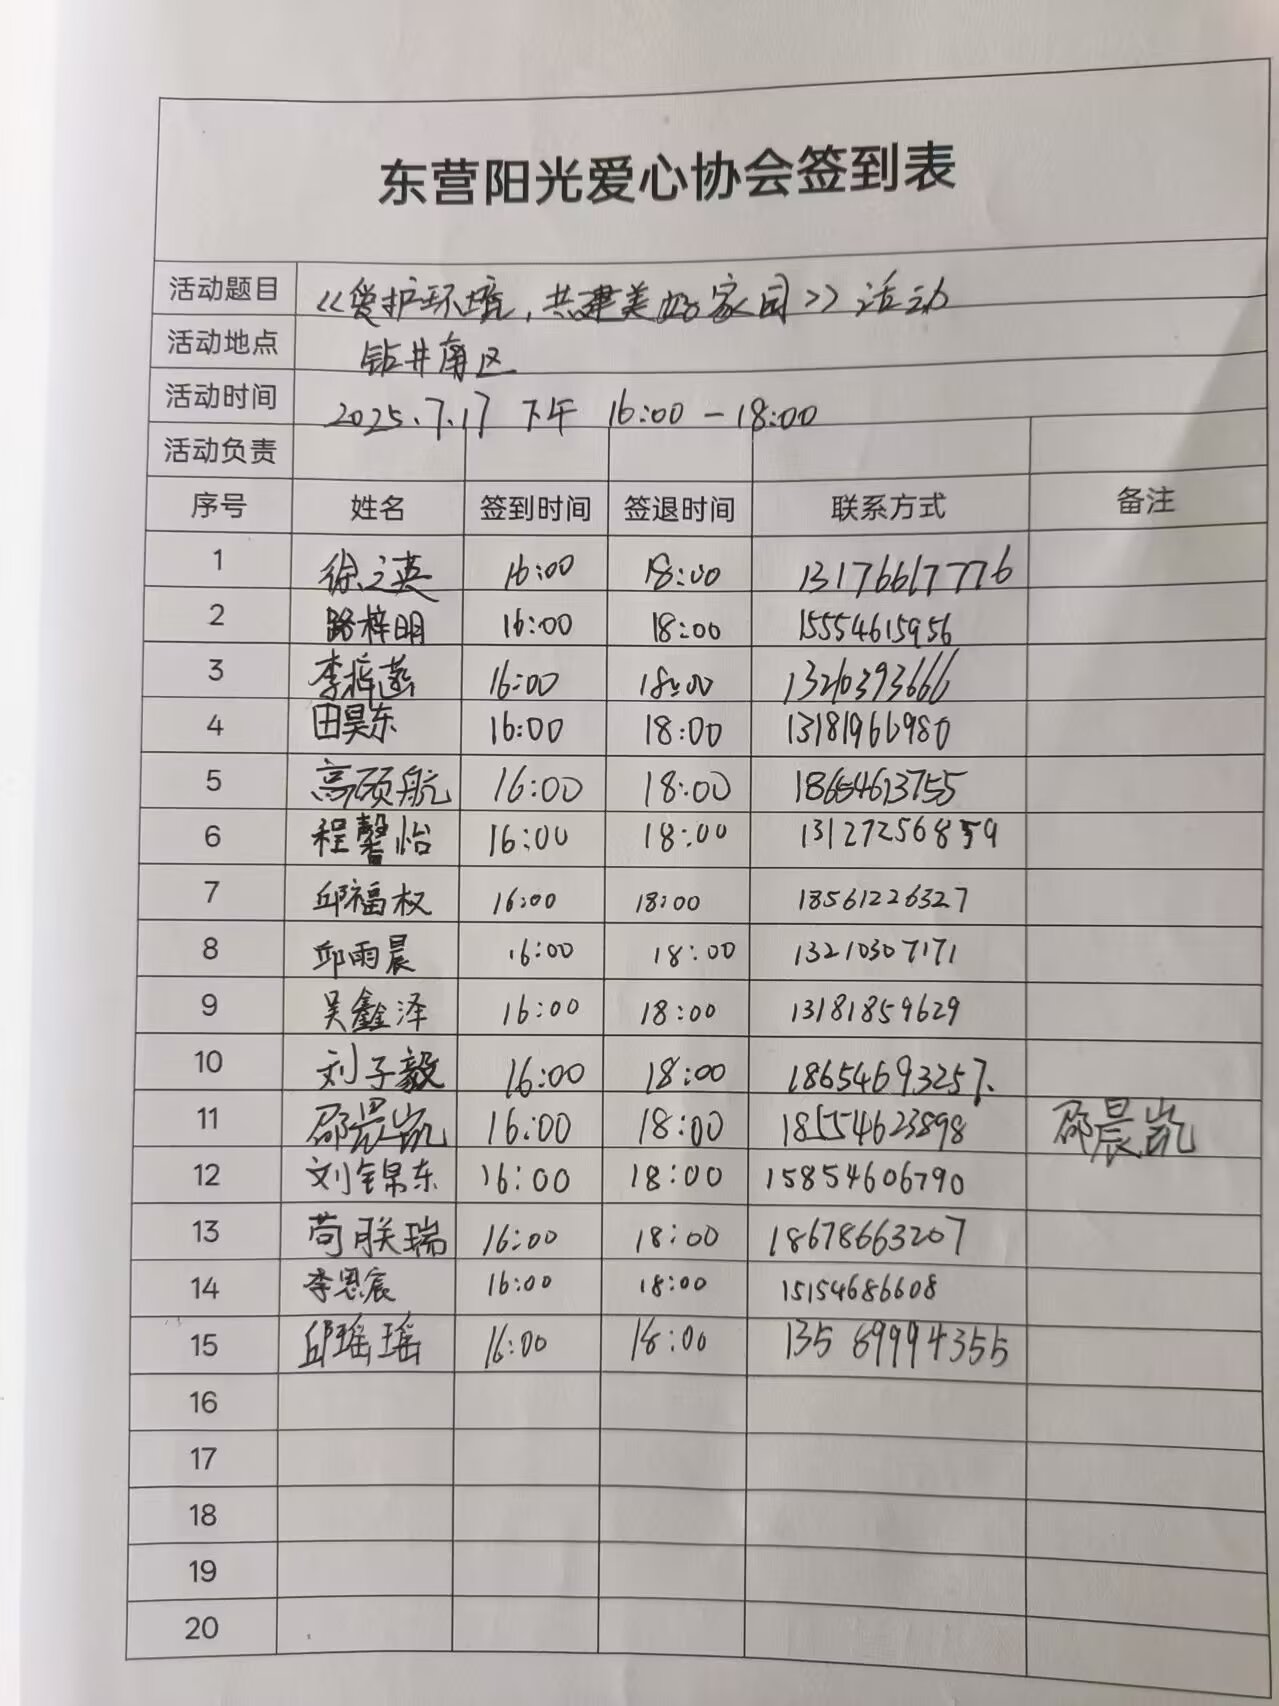 东营阳光爱心协会签到表
活动题目 《爱护环境，共建美好家园》活动
活动地点 钻井南区
活动时间 2025.7.17 下午 16:00－18:00
活动负责
序号 姓名 签到时间 签退时间 联系方式 备注
1 徐之英 16:00 18:00 13176617776
2 路梓明 16:00 18:00 15554615956
3 李梓 16:00 18:00
4 田昊东 16:00 18:00 13181966980
5 高硕航 16:00 18:00 18654613755
6 程馨怡 16:00 18:00 13127256859
7 邱福权 16:00 18:00 18561226327
8 邱雨晨 16:00 18:00 13210307171
9 吴鑫泽 16:00 18:00 13181859629
10 刘子毅 16:00 18:00 18654693257.
11 邵晨凯 16:00 18:00 18554623898 邵晨凯
12 刘锦东 16:00 18:00 15854606790
13 苟联瑞 16:00 18:00 18678663207
14 李恩宸 16:00 18:00 15154686608
15 邱瑶瑶 16:00 18:00 13589994355
16
17
18
19
20